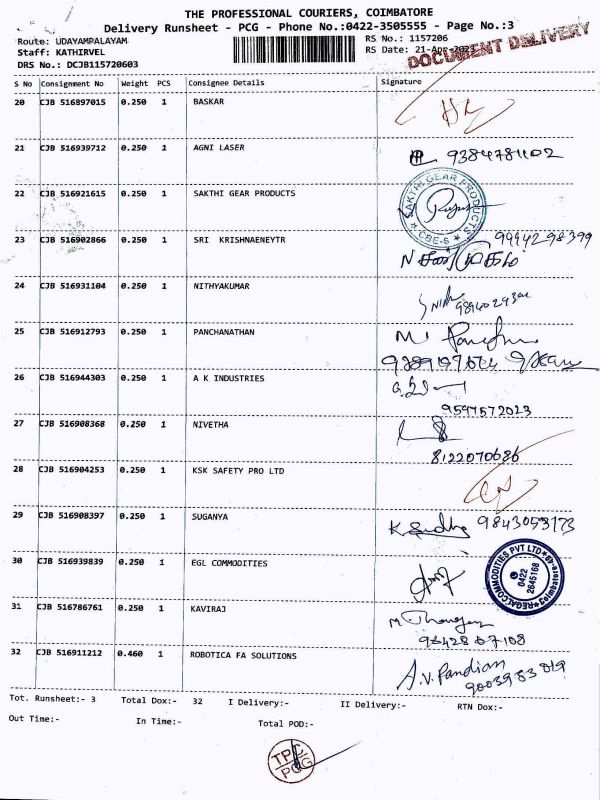 THE PROFESSIONAL COURIERS, COIMBATORE
Delivery Runsheet - PCG - Phone No.:0422-3505555 - Page No.:3
Route: UDAYAMPALAYAM RS No.: 1157206
Staff: KATHIRVEL RS Date: 21-Apr-2023
DRS No.: DCJB115720603 DOCUMENT DELIVERY
S No Consignment No Weight PCS Consignee Details Signature
20 CJB 516897015 0.250 1 BASKAR
21 CJB 516939712 0.250 1 AGNI LASER 9384781102
22 CJB 516921615 0.250 1 SAKTHI GEAR PRODUCTS
SAKTHI GEAR PRODUCTS CBE-6
23 CJB 516902866 0.250 1 SRI KRISHNAENEYTR 9994298399
24 CJB 516931104 0.250 1 NITHYAKUMAR
25 CJB 516912793 0.250 1 PANCHANATHAN
26 CJB 516944303 0.250 1 A K INDUSTRIES
9597572023
27 CJB 516908368 0.250 1 NIVETHA
8122070686
28 CJB 516904253 0.250 1 KSK SAFETY PRO LTD
29 CJB 516908397 0.250 1 SUGANYA 9843053173
30 CJB 516939839 0.250 1 EGL COMMODITIES
REGALCOMMODITIES PVT LTD 0422 2645168
31 CJB 516786761 0.250 1 KAVIRAJ
32 CJB 516911212 0.460 1 ROBOTICA FA SOLUTIONS A.V. Pandian
9003983019
Tot. Runsheet:- 3 Total Dox:- 32 I Delivery:- II Delivery:- RTN Dox:-
Out Time:- In Time:- Total POD:-
TPC
PCG